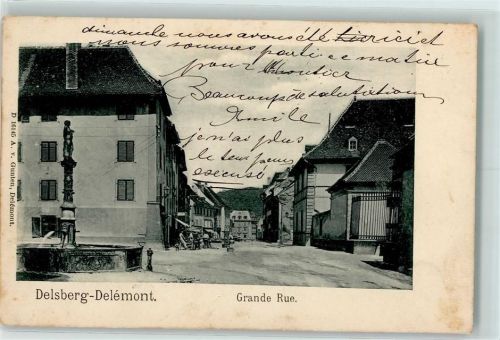 dimanche nous avons été ici et
nous sommes parti ce matin
pour Moutier
Beaucoup de salutations
Emile
je n'ai plus
le temps pour
D 16045 A. v. Gunten, Delémont.
Delsberg-Delémont.
Grande Rue.